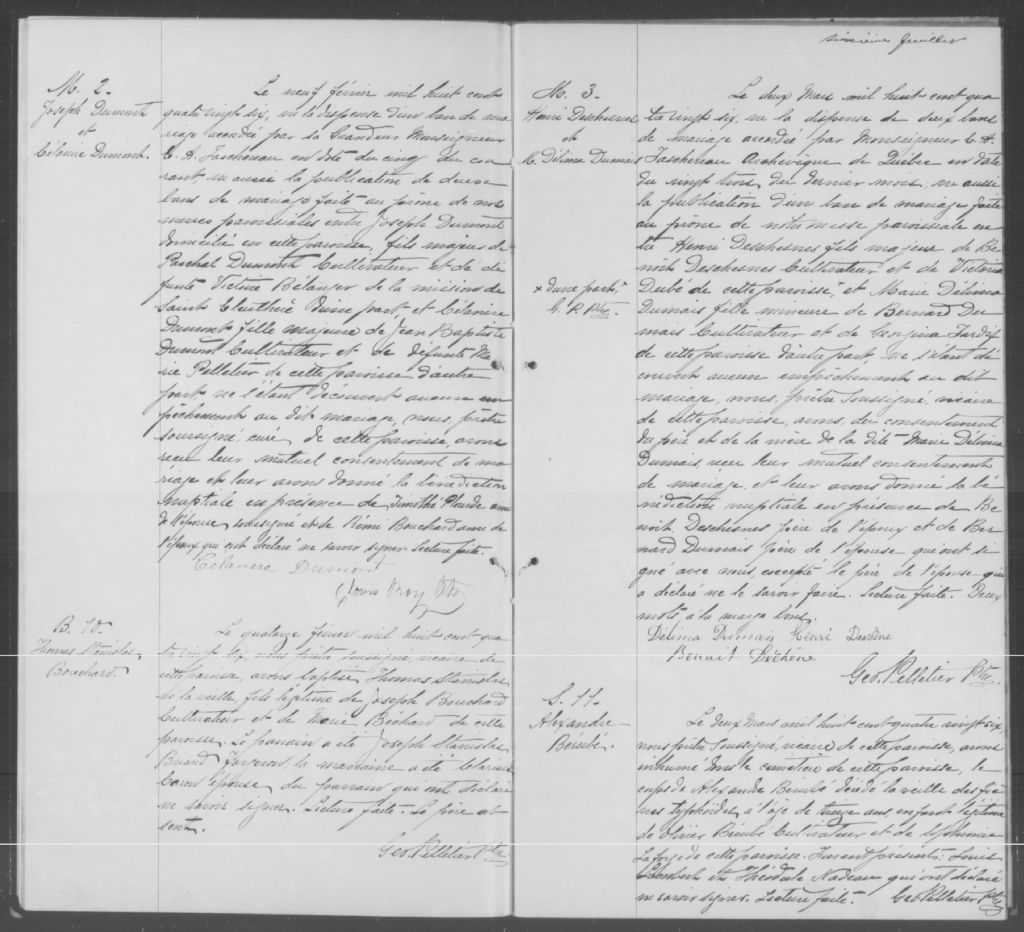 M. 2.
Joseph Dumont
et
Célanire Dumont.
Le neuf février mil huit cent
quatre vingt six, vu la dispense d'un ban de ma
riage accordée par Sa Grandeur Monseigneur
E. A. Taschereau en date du cinq du cou
rant, vu aussi la publication de deux
bans de mariage faite au prône de nos
messes paroissiales entre Joseph Dumont
domicilié en cette paroisse, fils majeur de
Paschal Dumont Cultivateur et de dé
funte Victoire Bélanger de la mission de
Saint Eleuthère d'une part, et Célanire
Dumont fille majeure de Jean Baptiste
Dumont Cultivateur et de défunte Ma
rie Pelletier de cette paroisse d'autre
part, ne s'étant découvert aucun em
pêchement au dit mariage, nous, prêtre
soussigné, curé, de cette paroisse, avons
reçu leur mutuel consentement de ma
riage et leur avons donné la bénédiction
nuptiale en présence de Timothé Plourde ami
de l'épouse, soussigné et de Rémi Bouchard ami de
l'époux qui ont déclaré ne savoir signer. Lecture faite.
Célanire Dumont
B. 10.
Thomas Stanislas
Bouchard.
Le quatorze février mil huit cent qua
tre vingt six, nous prêtre soussigné, vicaire de
cette paroisse, avons baptisé Thomas Stanislas
né la veille, fils légitime de Joseph Bouchard
Cultivateur et de Marie Bechard de cette
paroisse. Le parrain a été Joseph Stanislas
Briand forgeron, la marraine a été Clarisse
Caron épouse du parrain qui ont déclaré
ne savoir signer. Lecture faite. Le père ab
sent.
Geo. Pelletier Ptre
sixième feuillet
M. 3.
Henri Deschesnes
et
M. Délima Dumais
Le deux Mars mil huit cent qua
tre vingt six, vu la dispense de deux bans
de mariage accordée par Monseigneur E. A.
Taschereau Archevêque de Québec en date
du vingt trois du dernier mois; vu aussi
la publication d'un ban de mariage faite
au prône de notre messe paroissiale en
tre Henri Deschesnes fils majeur de Be
noit Deschesnes Cultivateur et de Victoria
Dubé de cette paroisse, x et Marie Délima
Dumais fille mineure de Bernard Du
mais Cultivateur et de Georgina Tardif
de cette paroisse d'autre part, ne s'étant dé
couvert aucun empêchement au dit
mariage, nous, prêtre soussigné, vicaire
de cette paroisse, avons, du consentement
du père et de la mère de la dite Marie Délima
Dumais, reçu leur mutuel consentement
de mariage, et leur avons donné la bé
nédiction nuptiale en présence de Be
noit Deschesnes père de l'époux et de Ber
nard Dumais père de l'épouse qui ont si
gné avec nous, excepté le père de l'épouse qui
a déclaré ne le savoir faire. Lecture faite. Deux
mots à la marge bons.
x d'une part,
G. P. Ptre.
Délima Dumais Henri Deschêne
Benoit Dechêne
Geo. Pelletier Ptre.
S. 11.
Alexandre
Bérubé.
Le deux Mars mil huit cent quatre vingt six,
nous prêtre soussigné, vicaire de cette paroisse, avons
inhumé dans le cimetière de cette paroisse, le
corps de Alexandre Bérubé décédé la veille des fiè
vres typhoïdes, à l'âge de treize ans, enfant légitime
de Olivier Bérubé Cultivateur et de Sophronie
Laforge de cette paroisse. Furent présents: Louis
Lambert et Théodule Nadeau qui ont déclaré
ne savoir signer. Lecture faite. Geo Pelletier Ptre